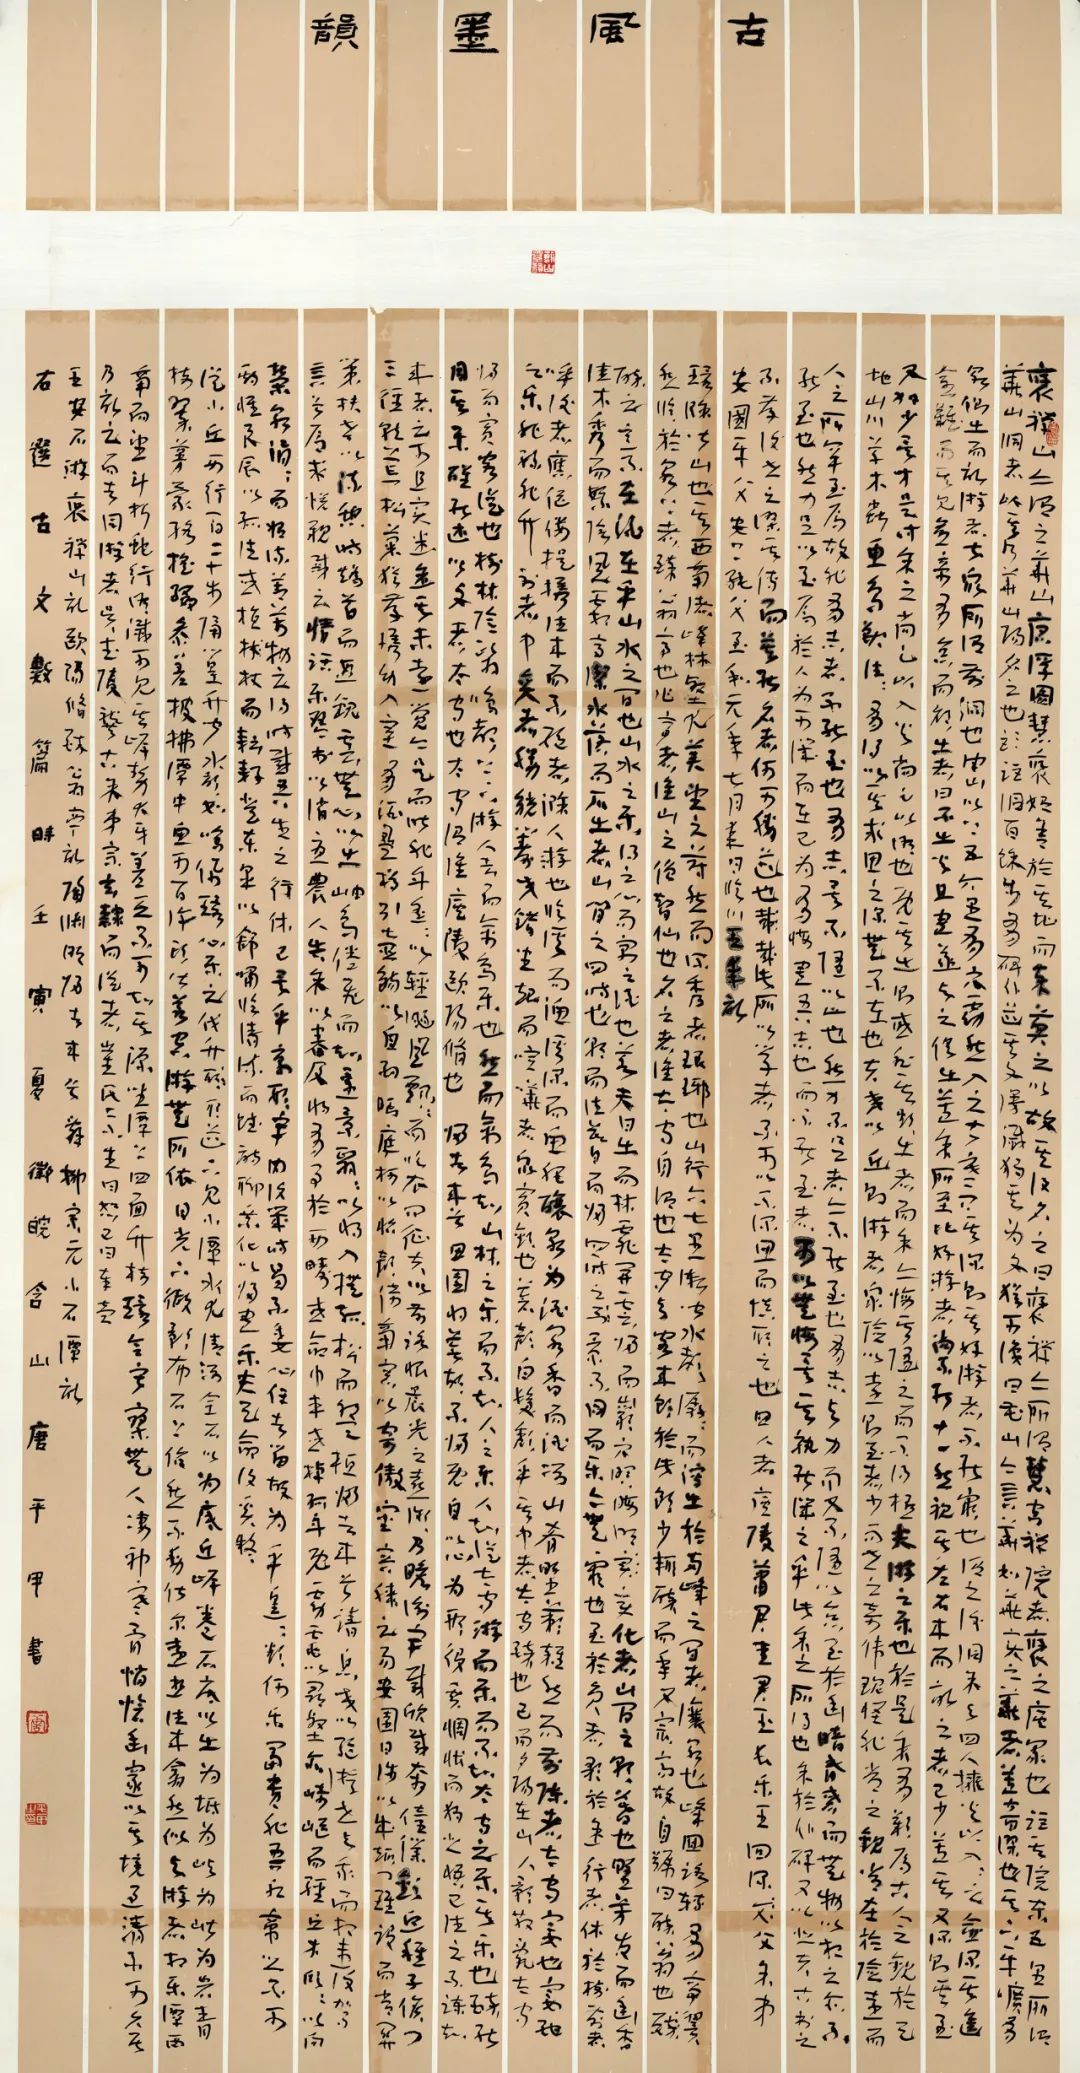 古風墨韻
褒禪山亦謂之華山唐浮圖慧褒始舍於其址而卒葬之以故其後名之曰褒禪今所謂慧空禪院者褒之廬冢也距其院東五里所謂
華山洞者以其乃華山陽名之也距洞百餘步有碑仆道其文漫滅獨其為文猶可識曰花山今言華如華實之華者蓋音謬也其下平曠有
泉側出而記遊者甚眾所謂前洞也由山以上五六里有穴窈然入之甚寒問其深則其好遊者不能窮也謂之後洞余與四人擁火以入入之愈深其進
愈難而其見愈奇有怠而欲出者曰不出火且盡遂與之俱出蓋余所至比好遊者尚不能十一然視其左右來而記之者已少蓋其又深則其至
又加少矣方是時余之力尚足以入火尚足以明也既其出則或咎其欲出者而余亦悔其隨之而不得極夫遊之樂也於是余有歎焉古人之觀於天
地山川草木蟲魚鳥獸往往有得以其求思之深無不在也夫夷以近則遊者眾險以遠則至者少而世之奇偉瑰怪非常之觀常在於險遠而
人之所罕至焉故非有志者不能至也有志矣不隨以止也然力不足者亦不能至也有志與力而又不隨以怠至於幽暗昏惑而無物以相之亦不
能至也然力足以至焉於人為可譏而在己為有悔盡吾志也而不能至者可以無悔矣其孰能譏之乎此余之所得也余於仆碑又以悲夫古書之
不存後世之謬其傳而莫能名者何可勝道也哉此所以學者不可以不深思而慎取之也四人者廬陵蕭君圭君玉長樂王回深父余弟
安國平父安上純父至和元年七月某日臨川王某記
環滁皆山也其西南諸峰林壑尤美望之蔚然而深秀者琅琊也山行六七里漸聞水聲潺潺而瀉出於兩峰之間者釀泉也峰回路轉有亭翼
然臨於泉上者醉翁亭也作亭者誰山之僧智仙也名之者誰太守自謂也太守與客來飲於此飲少輒醉而年又最高故自號曰醉翁也醉
翁之意不在酒在乎山水之間也山水之樂得之心而寓之酒也若夫日出而林霏開雲歸而巖穴暝晦明變化者山間之朝暮也野芳發而幽香
佳木秀而繁陰風霜高潔水落而石出者山間之四時也朝而往暮而歸四時之景不同而樂亦無窮也至於負者歌於途行者休於樹前者
呼後者應傴僂提攜往來而不絕者滁人遊也臨溪而漁溪深而魚肥釀泉為酒泉香而酒洌山肴野蔌雜然而前陳者太守宴也宴酣
之樂非絲非竹射者中弈者勝觥籌交錯坐起而喧嘩者眾賓歡也蒼顏白髮頹乎其中者太守醉也已而夕陽在山人影散亂太守
歸而賓客從也樹林陰翳鳴聲上下遊人去而禽鳥樂也然而禽鳥知山林之樂而不知人之樂人知從太守遊而樂而不知太守之樂其樂也醉能
同其樂醒能述以文者太守也太守謂誰廬陵歐陽脩也 歸去來兮田園將蕪胡不歸既自以心為形役奚惆悵而獨悲悟已往之不諫知
來者之可追實迷途其未遠覺今是而昨非舟遙遙以輕颺風飄飄而吹衣問征夫以前路恨晨光之熹微乃瞻衡宇載欣載奔僮僕歡迎稚子候門
三徑就荒松菊猶存攜幼入室有酒盈樽引壺觴以自酌眄庭柯以怡顏倚南窗以寄傲審容膝之易安園日涉以成趣門雖設而常關
策扶老以流憩時矯首而遐觀雲無心以出岫鳥倦飛而知還景翳翳以將入撫孤松而盤桓歸去來兮請息交以絕遊世與我而相違復駕
言兮焉求悅親戚之情話樂琴書以消憂農人告余以春及將有事於西疇或命巾車或棹孤舟既窈窕以尋壑亦崎嶇而經丘木欣欣以向
榮泉涓涓而始流善萬物之得時感吾生之行休已矣乎寓形宇內復幾時曷不委心任去留胡為乎遑遑欲何之富貴非吾願帝鄉不可
期懷良辰以孤往或植杖而耘耔登東皋以舒嘯臨清流而賦詩聊乘化以歸盡樂夫天命復奚疑
從小丘西行百二十步隔篁竹聞水聲如鳴佩環心樂之伐竹取道下見小潭水尤清洌全石以為底近岸卷石底以出為坻為嶼為嵁為岩青
樹翠蔓蒙絡搖綴參差披拂潭中魚可百許頭皆若空遊無所依日光下徹影布石上佁然不動俶爾遠逝往來翕忽似與遊者相樂潭西
南而望斗折蛇行明滅可見其岸勢犬牙差互不可知其源坐潭上四面竹樹環合寂寥無人淒神寒骨悄愴幽邃以其境過清不可久居
乃記之而去同遊者吳武陵龔古余弟宗玄隸而從者崔氏二小生曰恕己曰奉壹
王安石遊褒禪山記歐陽脩醉翁亭記陶淵明歸去來兮辭柳宗元小石潭記
右選古文數篇時壬寅夏徽皖含山唐平甲書